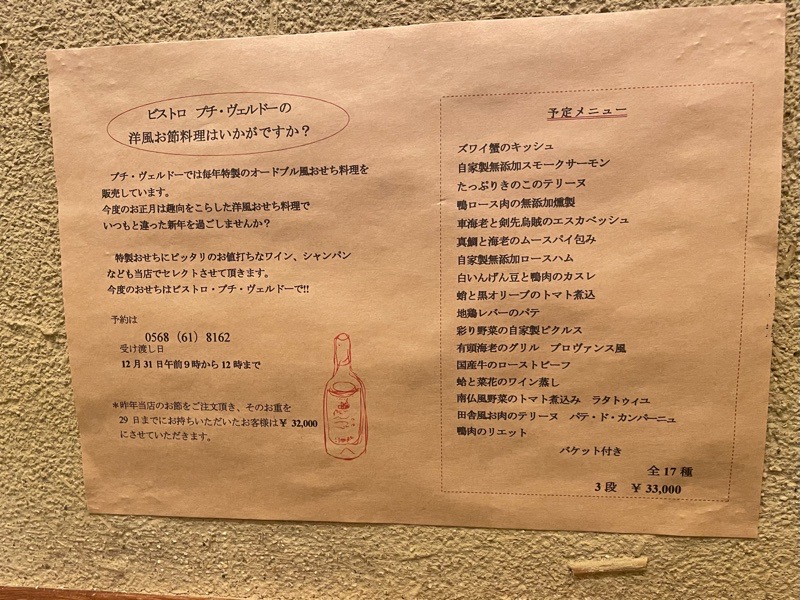 ビストロ プチ・ヴェルドーの
洋風お節料理はいかがですか？
プチ・ヴェルドーでは毎年特製のオードブル風おせち料理を
販売しています。
今度のお正月は趣向をこらした洋風おせち料理で
いつもと違った新年を過ごしませんか？
特製おせちにピッタリのお値打ちなワイン、シャンパン
なども当店でセレクトさせて頂きます。
今度のおせちはビストロ・プチ・ヴェルドーで!!
予約は
0568（61）8162
受け渡し日
12月31日午前9時から12時まで
＊昨年当店のお節をご注文頂き、そのお重を
29日までにお持ちいただいたお客様は￥32,000
にさせていただきます。
予定メニュー
ズワイ蟹のキッシュ
自家製無添加スモークサーモン
たっぷりきのこのテリーヌ
鴨ロース肉の無添加燻製
車海老と剣先烏賊のエスカベッシュ
真鯛と海老のムースパイ包み
自家製無添加ロースハム
白いんげん豆と鴨肉のカスレ
蛸と黒オリーブのトマト煮込
地鶏レバーのパテ
彩り野菜の自家製ピクルス
有頭海老のグリル　プロヴァンス風
国産牛のローストビーフ
蛤と菜花のワイン蒸し
南仏風野菜のトマト煮込み　ラタトゥイユ
田舎風お肉のテリーヌ　パテ・ド・カンパーニュ
鴨肉のリエット
バケット付き
全17種
3段　￥33,000